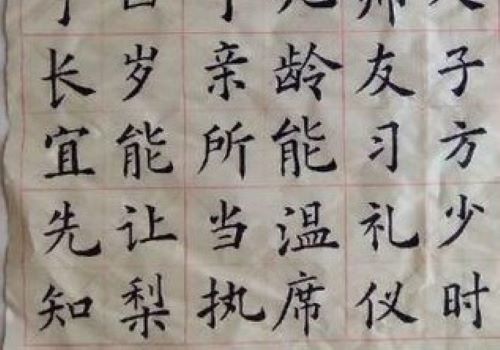 子方少时
友习礼仪
龄能温席
亲所当执
岁能让梨
长宜先知